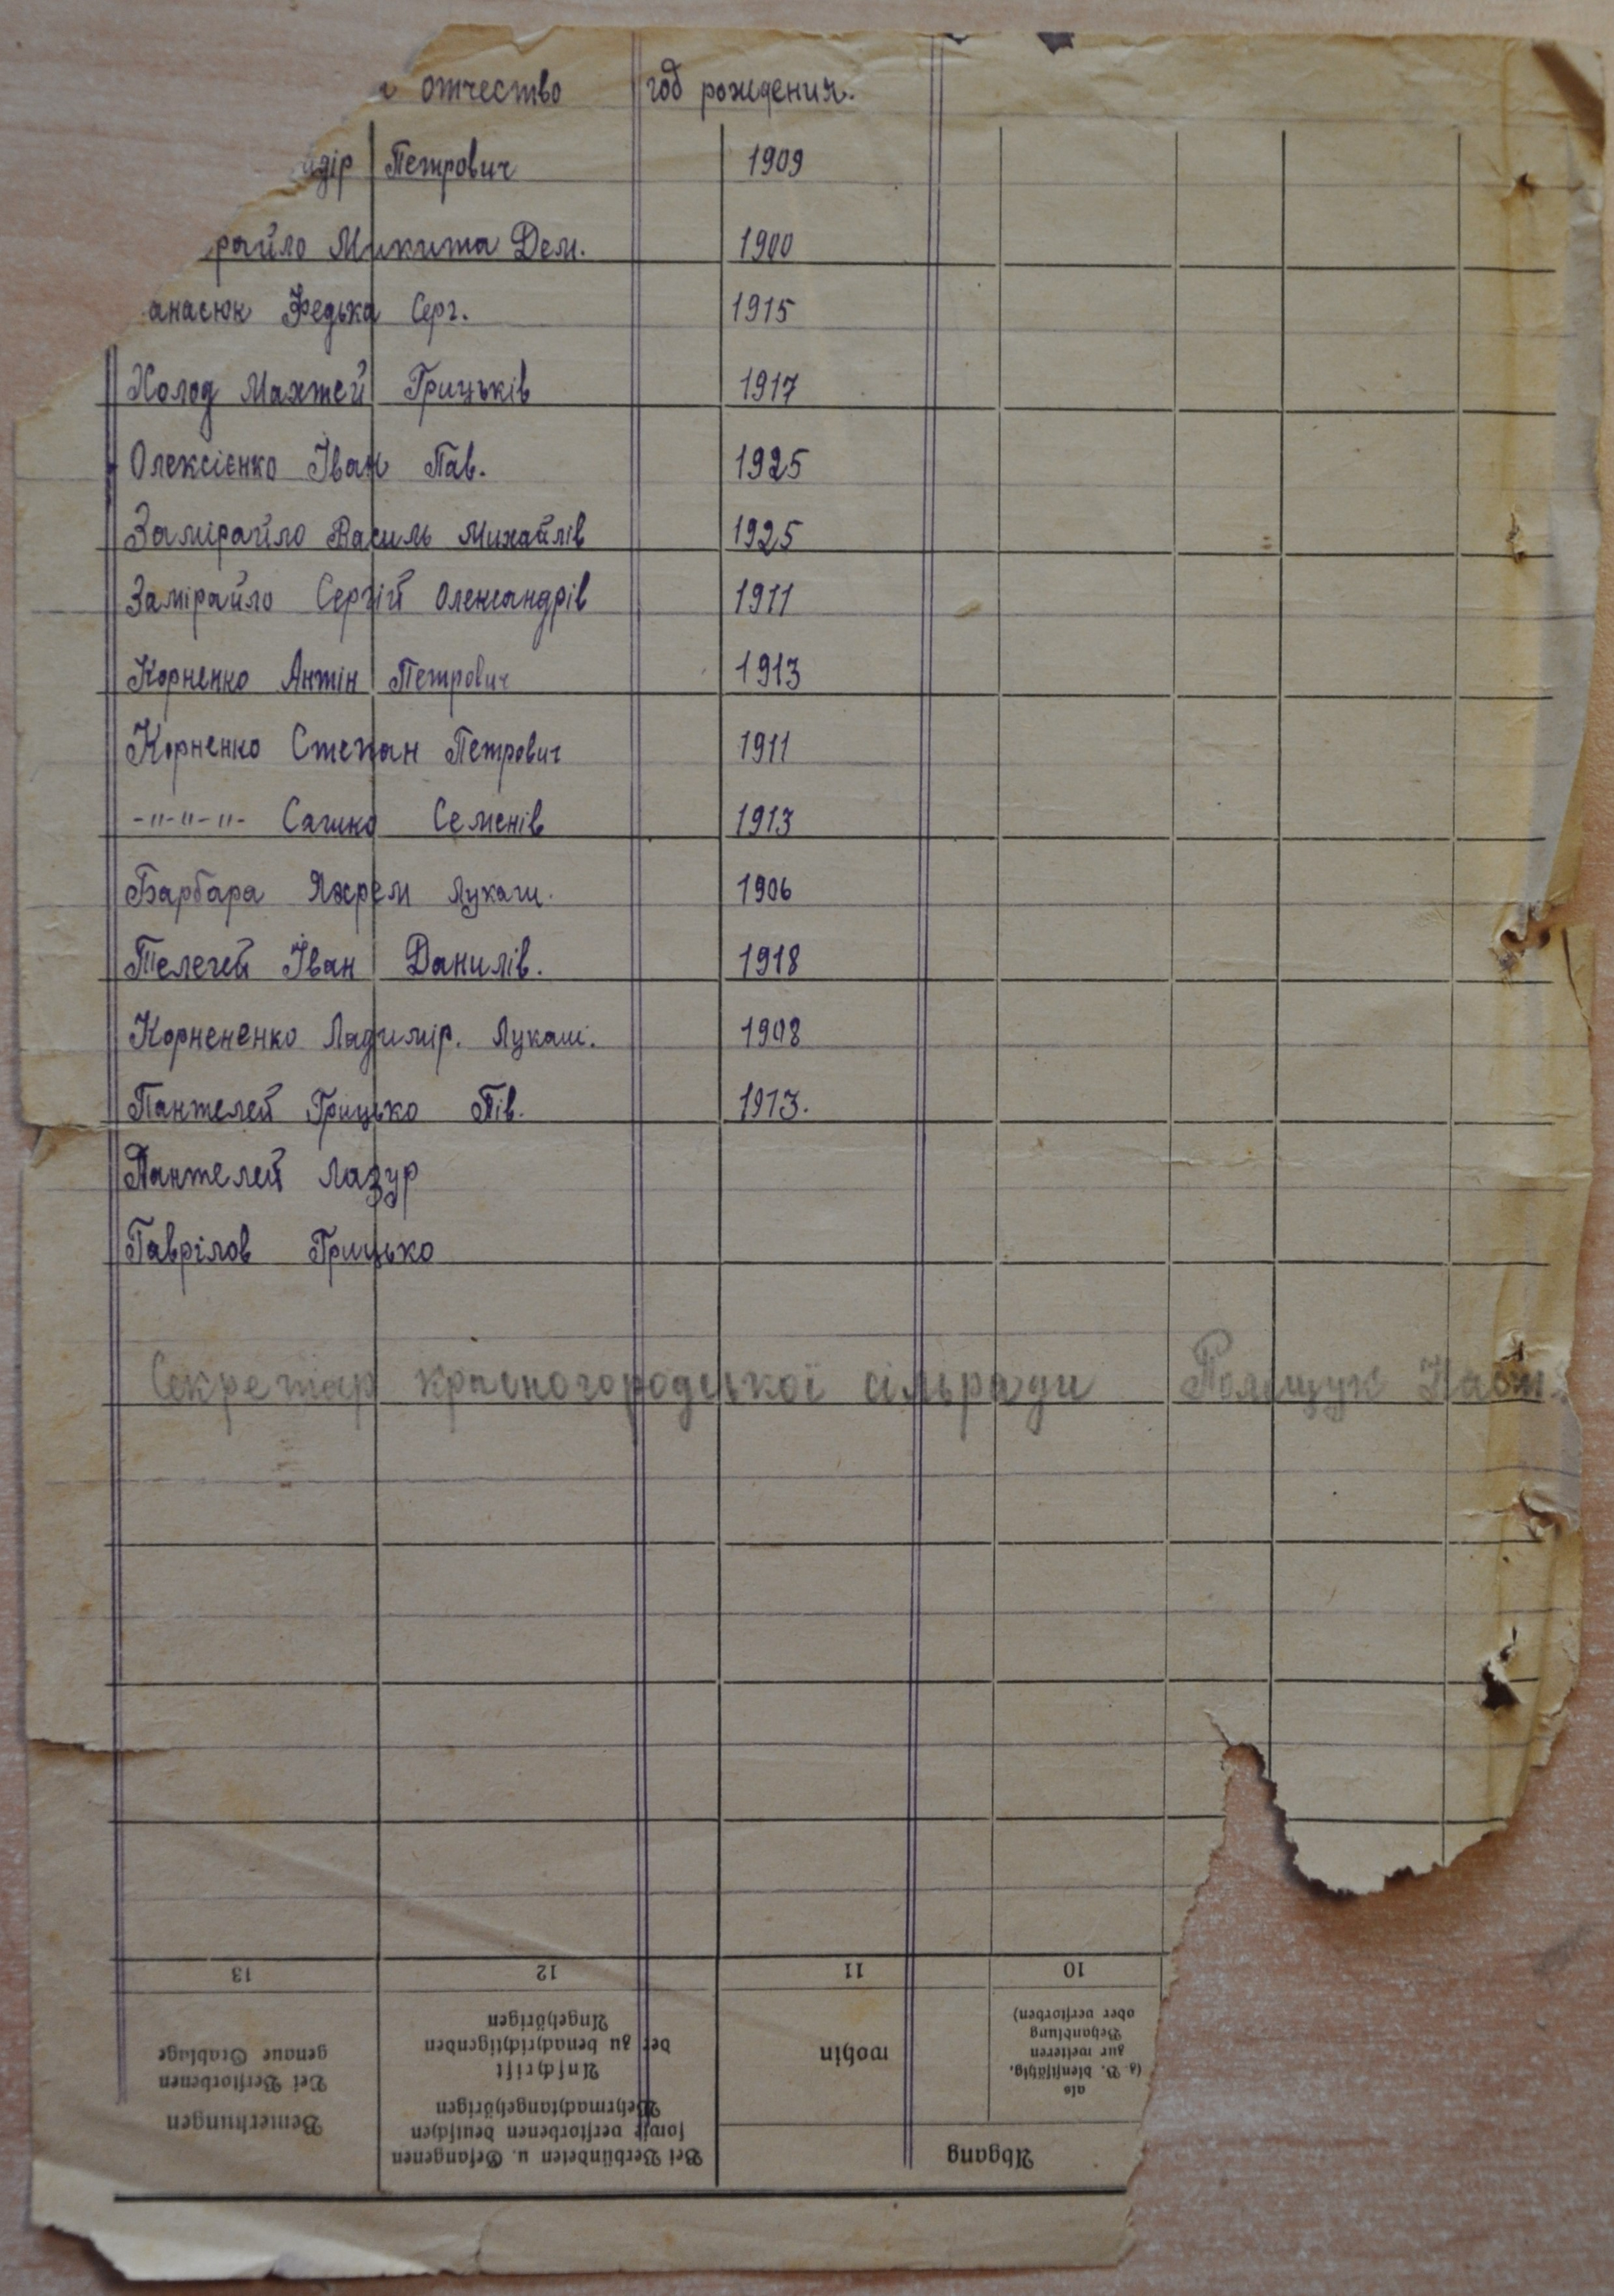 отчество год рождения.
Петрович 1909
райло Микита Дем. 1900
анасюк Федька Серг. 1915
Холод Махтей Грицьків 1917
Олексієнко Іван Пав. 1925
Замірайло Василь Михайлів 1925
Замірайло Сергій Олександрів 1911
Корненко Антін Петрович 1913
Корненко Степан Петрович 1911
-"-"-"- Сашко Семенів 1913
Барбара Яхрем Лукаш. 1906
Телегей Іван Данилів. 1918
Корнененко Ладимір. Лукаш. 1908
Пантелей Грицько Пів. 1913.
Пантелей Лазур
Гаврілов Грицько
Секретар красногородської сільради Поліщук
13 12 11 10
Bemerkungen
Bei Verstorbenen
genaue Grablage
Bei Verbündeten u. Gefangenen
sowie verstorbenen deutschen
Wehrmachtangehörigen
Anschrift
der zu benachrichtigenden
Angehörigen
Abgang
wohin
als
(z. B. dienstfähig,
zur weiteren
Behandlung
oder verstorben)